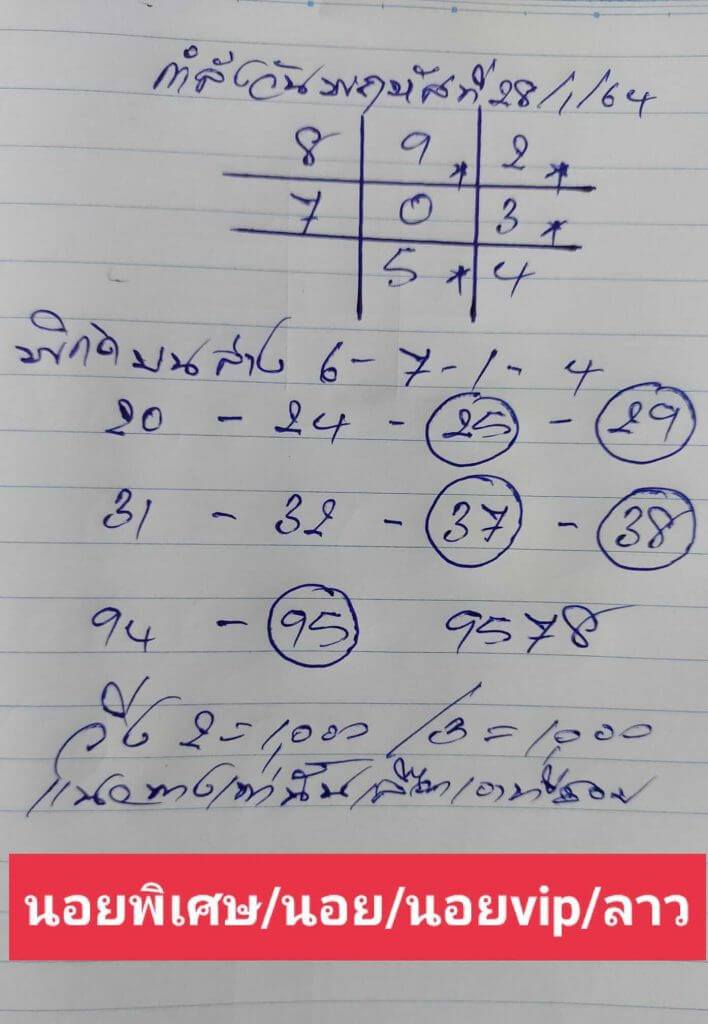 กำลังวันพฤหัสที่ 28/1/64
8 9* 2*
7 0 3*
5* 4
พิกัดบนล่าง 6-7-1-4
20 - 24 - 25 - 29
31 - 32 - 37 - 38
94 - 95 9578
วิ่ง 2=1,000/3=1,000
แนวทางเท่านั้น
นอยพิเศษ/นอย/นอยvip/ลาว